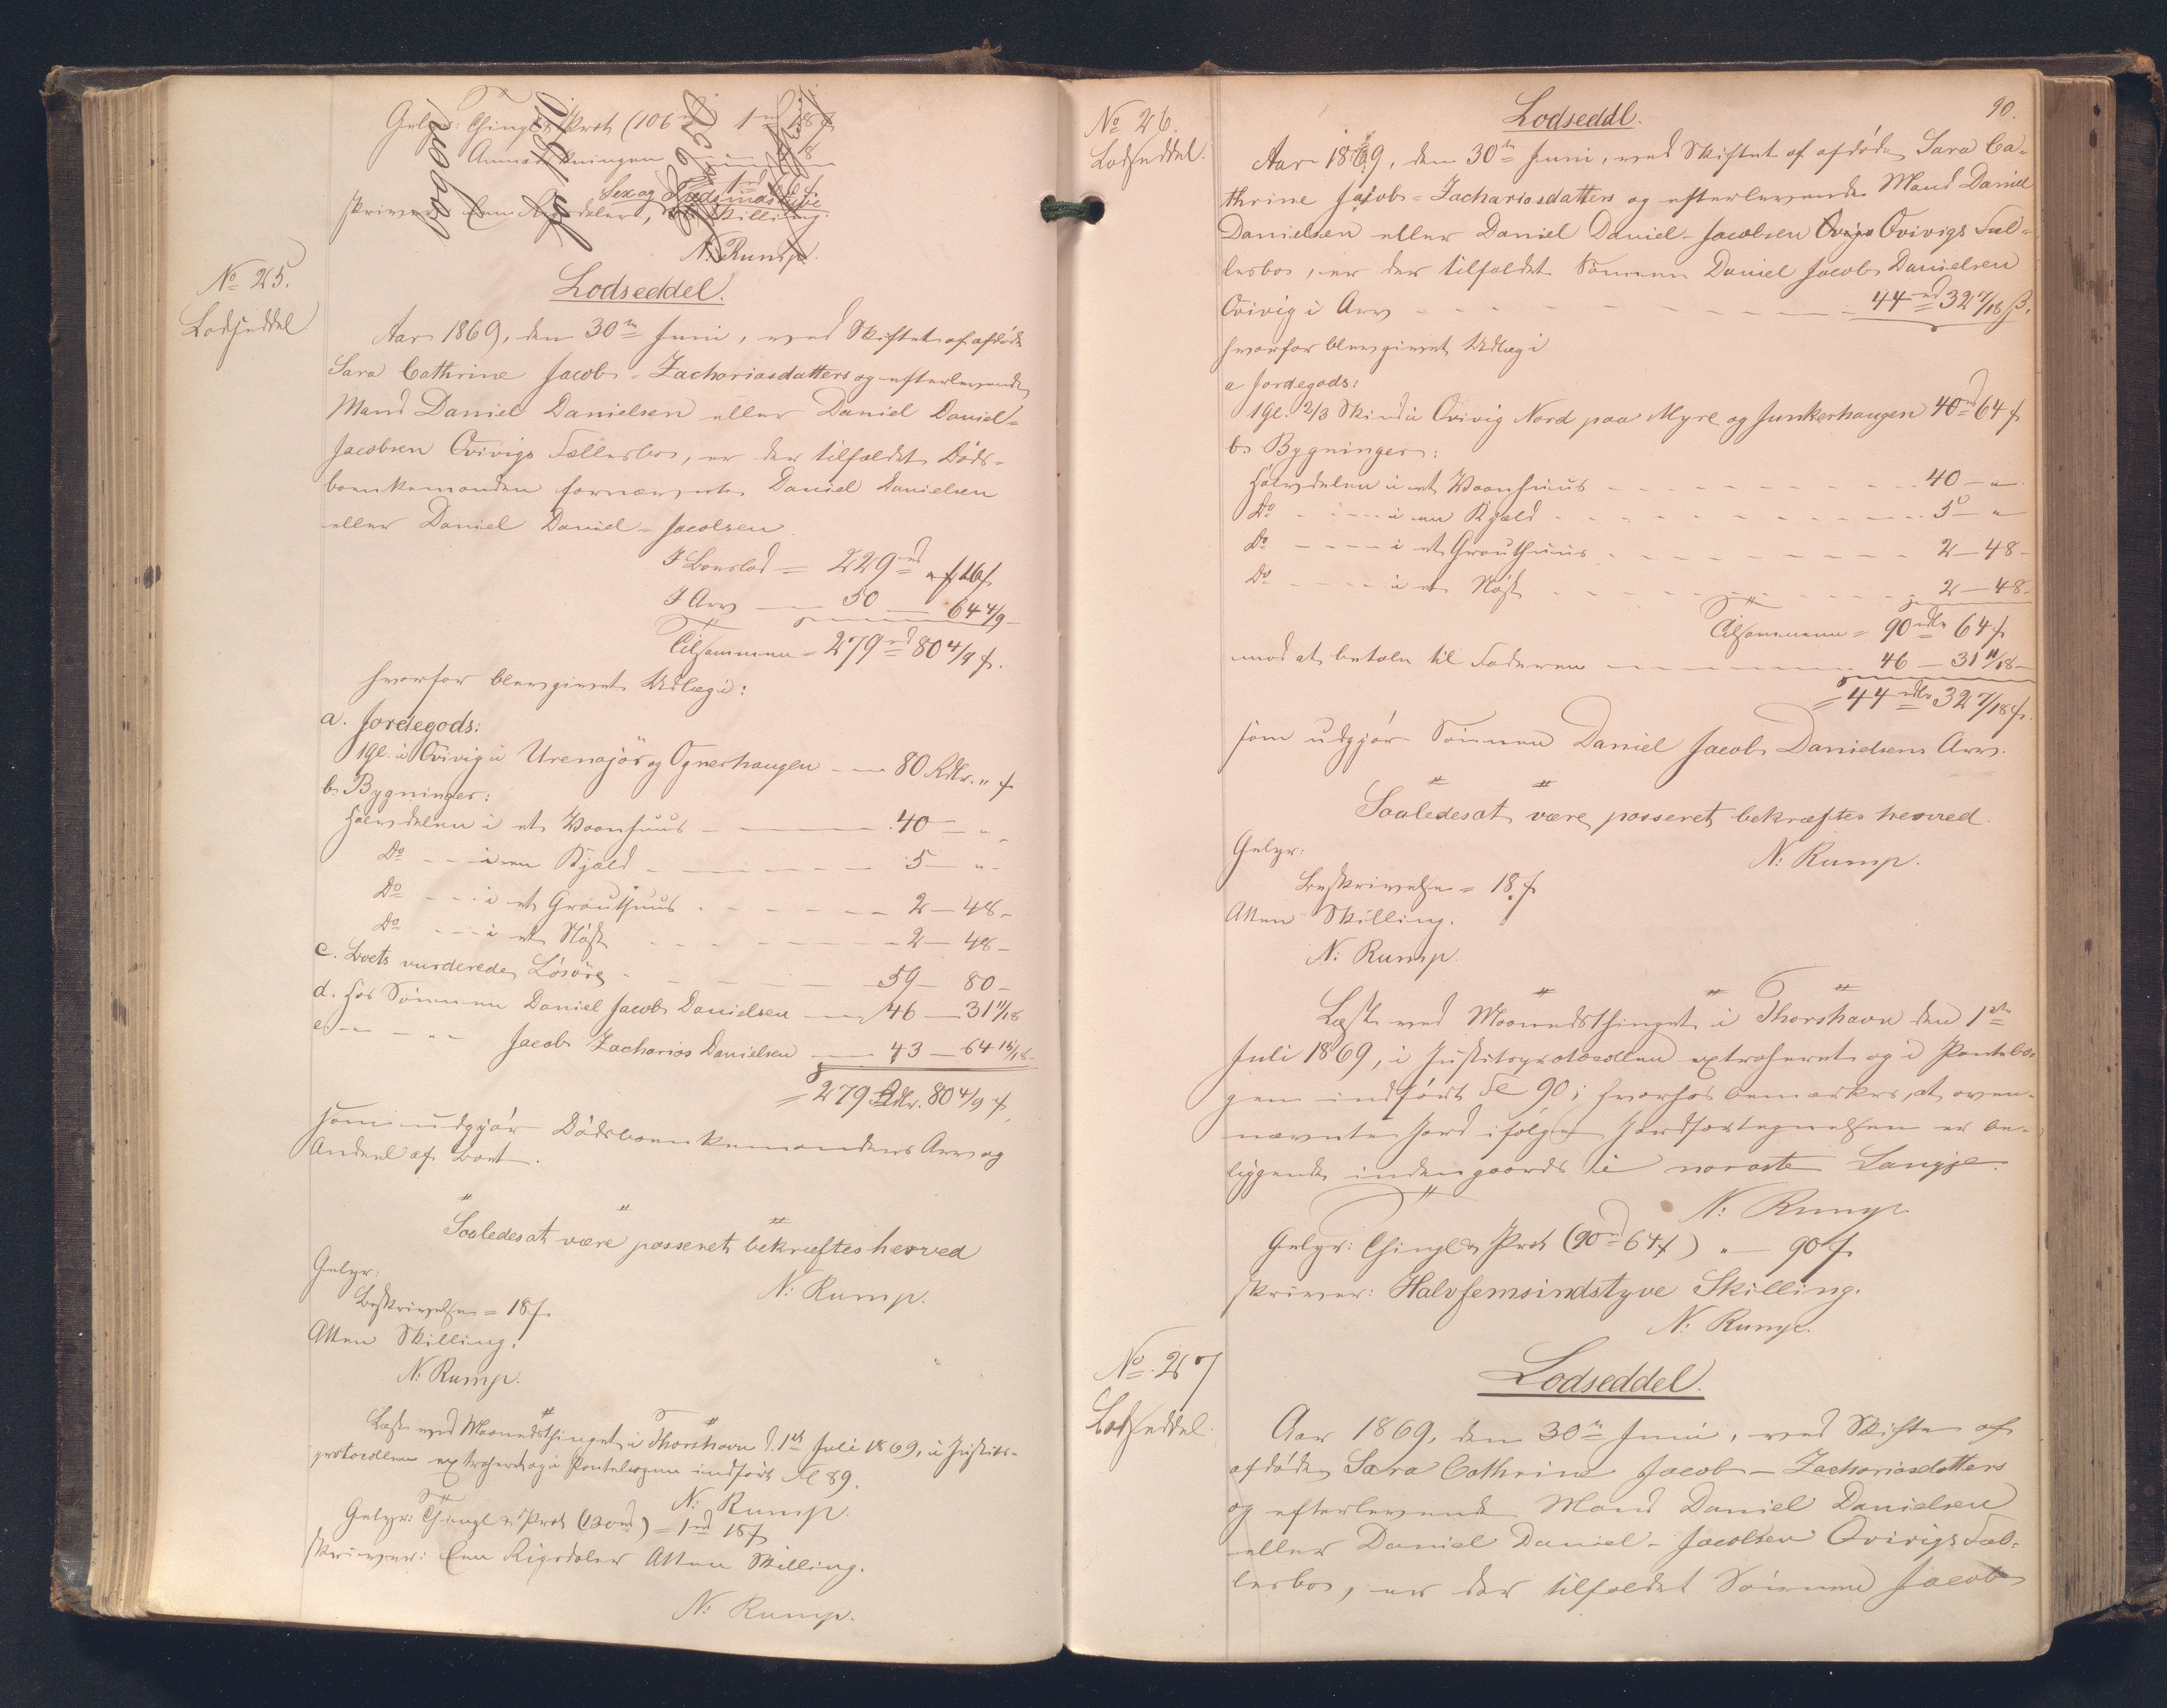 Gebyr: Thingl & Prot (106 1 rd 18 f
Anmærkningen 8
1 rd
Sex og Tredsindstyve
skriver Een Rigsdaler, Skilling.
N: Rump.
No 25.
Lodseddel
Lodseddel.
Aar 1869, den 30te Juni, ved Skiftet af afdöde
Sara Cathrine Jacob-Zachariasdatters og efterlevende
Mand Daniel Danielsen eller Daniel Daniel-
Jacobsen Qvivigs Fællesbo, er der tilfaldet Döds-
boenkemanden fornævnte Daniel Danielsen
eller Daniel Daniel-Jacobsen
I Boeslod = 229 rd 16 f
I Arv — 50 — 64 4/9 -
Tilsammen = 279 rd 80 4/9 f.
hvorfor blev givet Udlæg i:
a. Jordegods:
1 Gl. i Qvivig i Urenajör og Ognerhaugen — 80 Rdlr. " f
b. Bygninger:
Halvdelen i et Vaanhuus — 40 — " -
Do - - i en Kjæld — 5 — " -
Do - - i et Grouthuus - 2 — 48 -
Do - - - i et Nöst - 2 — 48 -
c. Boets vurderede Lösöre - 59 — 80 -
d. hos Sönnen Daniel Jacob Danielsen — 46 — 31 11/18
e - " - - " - Jacob Zacharias Danielsen — 43 — 64 15/18 -
= 279 Rdlr. 80 4/9 f.
som udgjör Dödsboenkemandens Arv og
Andeel af Boet.
Saaledes at være passeret bekræftes herved
N: Rump.
Gebyr:
Beskrivelsen = 18 f.
Atten Skilling.
N: Rump.
Læst ved Maanedsthinget i Thorshavn d. 1ste Juli 1869, i Justits-
protocollen extraheret og i Pantebogen indfört Fl 89.
N: Rump.
Gebyr: Thingl & Prot (130 rd) = 1 rd 18 f
skriver: Een Rigsdaler Atten Skilling.
N: Rump.
90.
No 26.
Lodseddel.
Lodseddl.
Aar 1869, den 30te Juni, ved Skiftet af afdöde Sara Ca-
thrine Jacob-Zachariasdatters og efterlevende Mand Daniel
Danielsen eller Daniel Daniel-Jacobsen Qvigs Qvivigs Fæl-
lesbo, er der tilfaldet Sönnen Daniel Jacob Danielsen
Qvivig i Arv - - - 44 rd 32 7/18 ß.
hvorfor blev givet Udlæg i
a Jordegods:
1 Gl. 2/3 Skind i Qvivig Nord paa Myre og Junkerhaugen 40 rd 64 f
b. Bygninger:
Halvdelen i et Vaanhuus - - - 40 — " -
Do - - - - i en Kjæld - - - 5 — "
Do - - - - i et Grouthuus - - - 2 — 48 -
Do - - - - i et Nöst - - - 2 — 48 -
Tilsammen = 90 rdlr 64 f.
mod at betale til Faderen — 46 — 31 11/18 -
= 44 rdlr 32 7/18 f.
som udgjör Sönnen Daniel Jacob Danielsens Arv.
Saaledes at være passeret bekræftes herved.
N: Rump.
Gebyr:
Beskrivelsen = 18 f
Atten Skilling.
N: Rump.
Læst ved Maanedsthinget i Thorshavn den 1ste
Juli 1869, i Justitsprotocollen extraheret og i Pantebo-
gen indfört Fl 90; hvorhos bemærkes, at oven-
nævnte Jord ifölge Jordfortegnelsen er be-
liggende indengaards i noraste Langje.
N: Rump.
Gebyr: Thingl & Prot (90 rd 64 f) " — 90 f.
skriver: Halvfemsindstyve Skilling.
N: Rump.
No. 27
Lodseddel.
Lodseddel.
Aar 1869, den 30te Juni, ved Skiftet af
afdöde Sara Cathrine Jacob-Zachariasdatters
og efterlevende Mand Daniel Danielsen
eller Daniel Daniel-Jacobsen Qvivigs Fæl-
lesbo, er der tilfaldet Sönnen Jacob